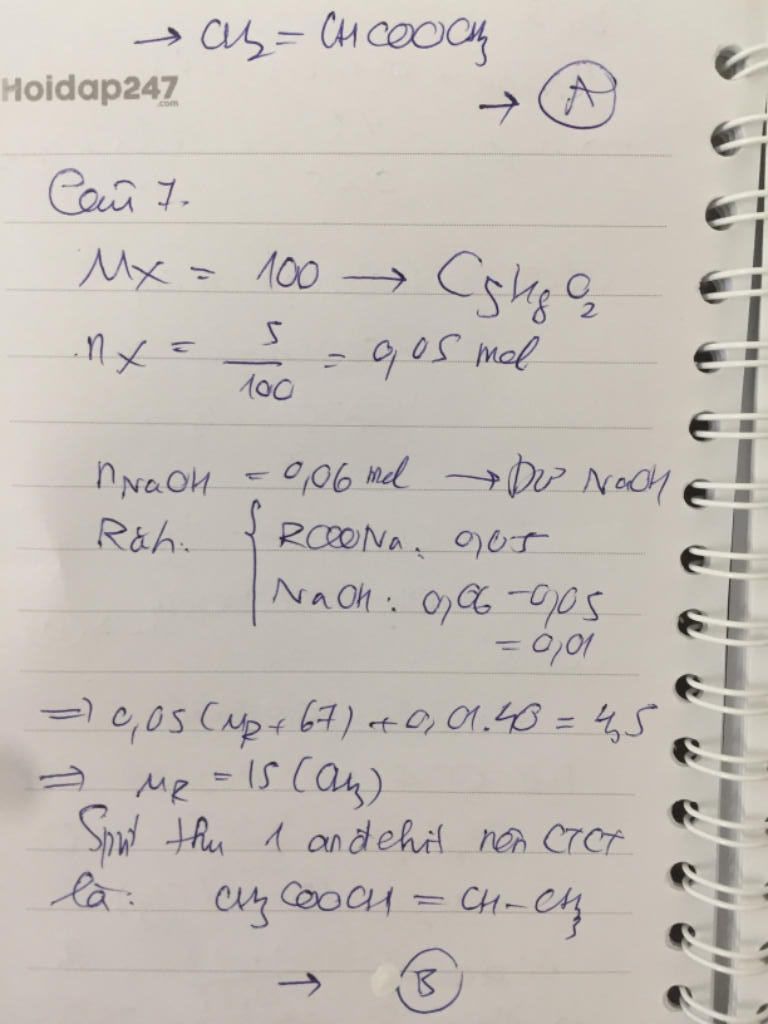 → CH₂ = CHCOOCH₃
Hoidap247
.com
→ A
Câu 7.
Mx = 100 → C₅H₈O₂
nx = 5/100 = 0,05 mol
nNaOH = 0,06 mol → Dư NaOH
Rắn: { RCOONa: 0,05
NaOH: 0,06 - 0,05
= 0,01
=> 0,05(MR + 67) + 0,01.40 = 4,5
=> MR = 15 (CH₃)
Spư thu 1 anđehit nên CTCT
là: CH₃COOCH = CH - CH₃
→ B